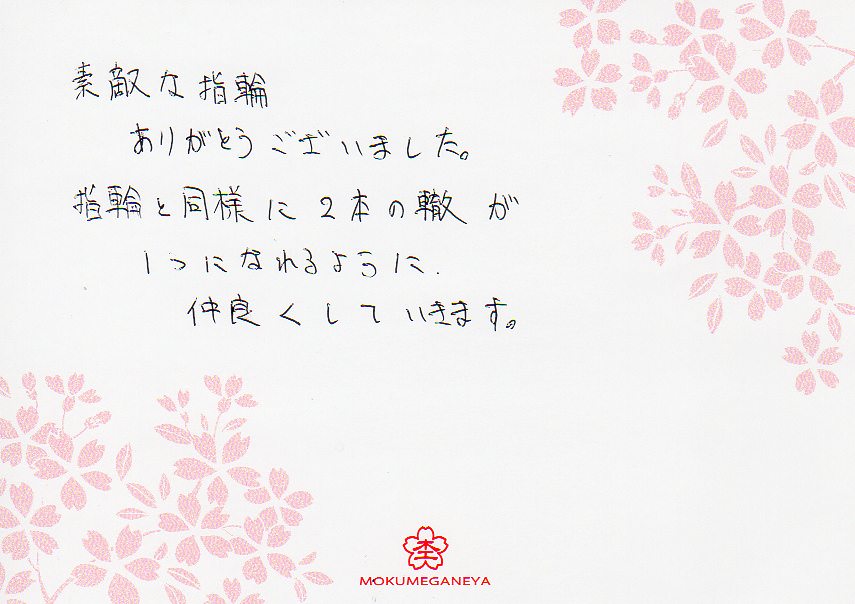 素敵な指輪
ありがとうございました。
指輪と同様に2本の轍が
1つになれるように.
仲良くしていきます。
杢
MOKUMEGANEYA